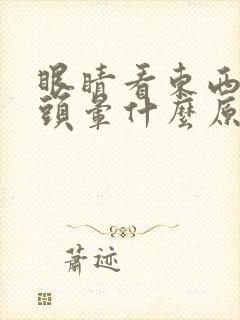 眼睛看東西
頭暈什麼原
蕭迹